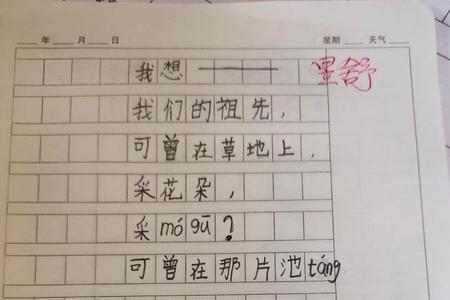 年 月 日 星期 天气
我想———
我们的祖先，
可曾在草地上，
采花朵，
采mó gū？
可曾在那片池táng